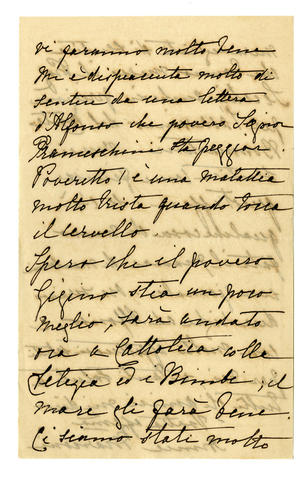 vi faranno molto bene
Mi è dispiaciuta molto di
sentire da una lettera
d'Alfonso che povero Signor
Franceschini sta peggior.
Poveretto! è una malattia
molto trista quando tocca
il cervello.
Spero che il povero
Gigino stia un poco
meglio, sarà andato
ora a Cattolica colla
Letizia ed i Bimbi, il
mare gli farà bene.
Ci siamo stati molto